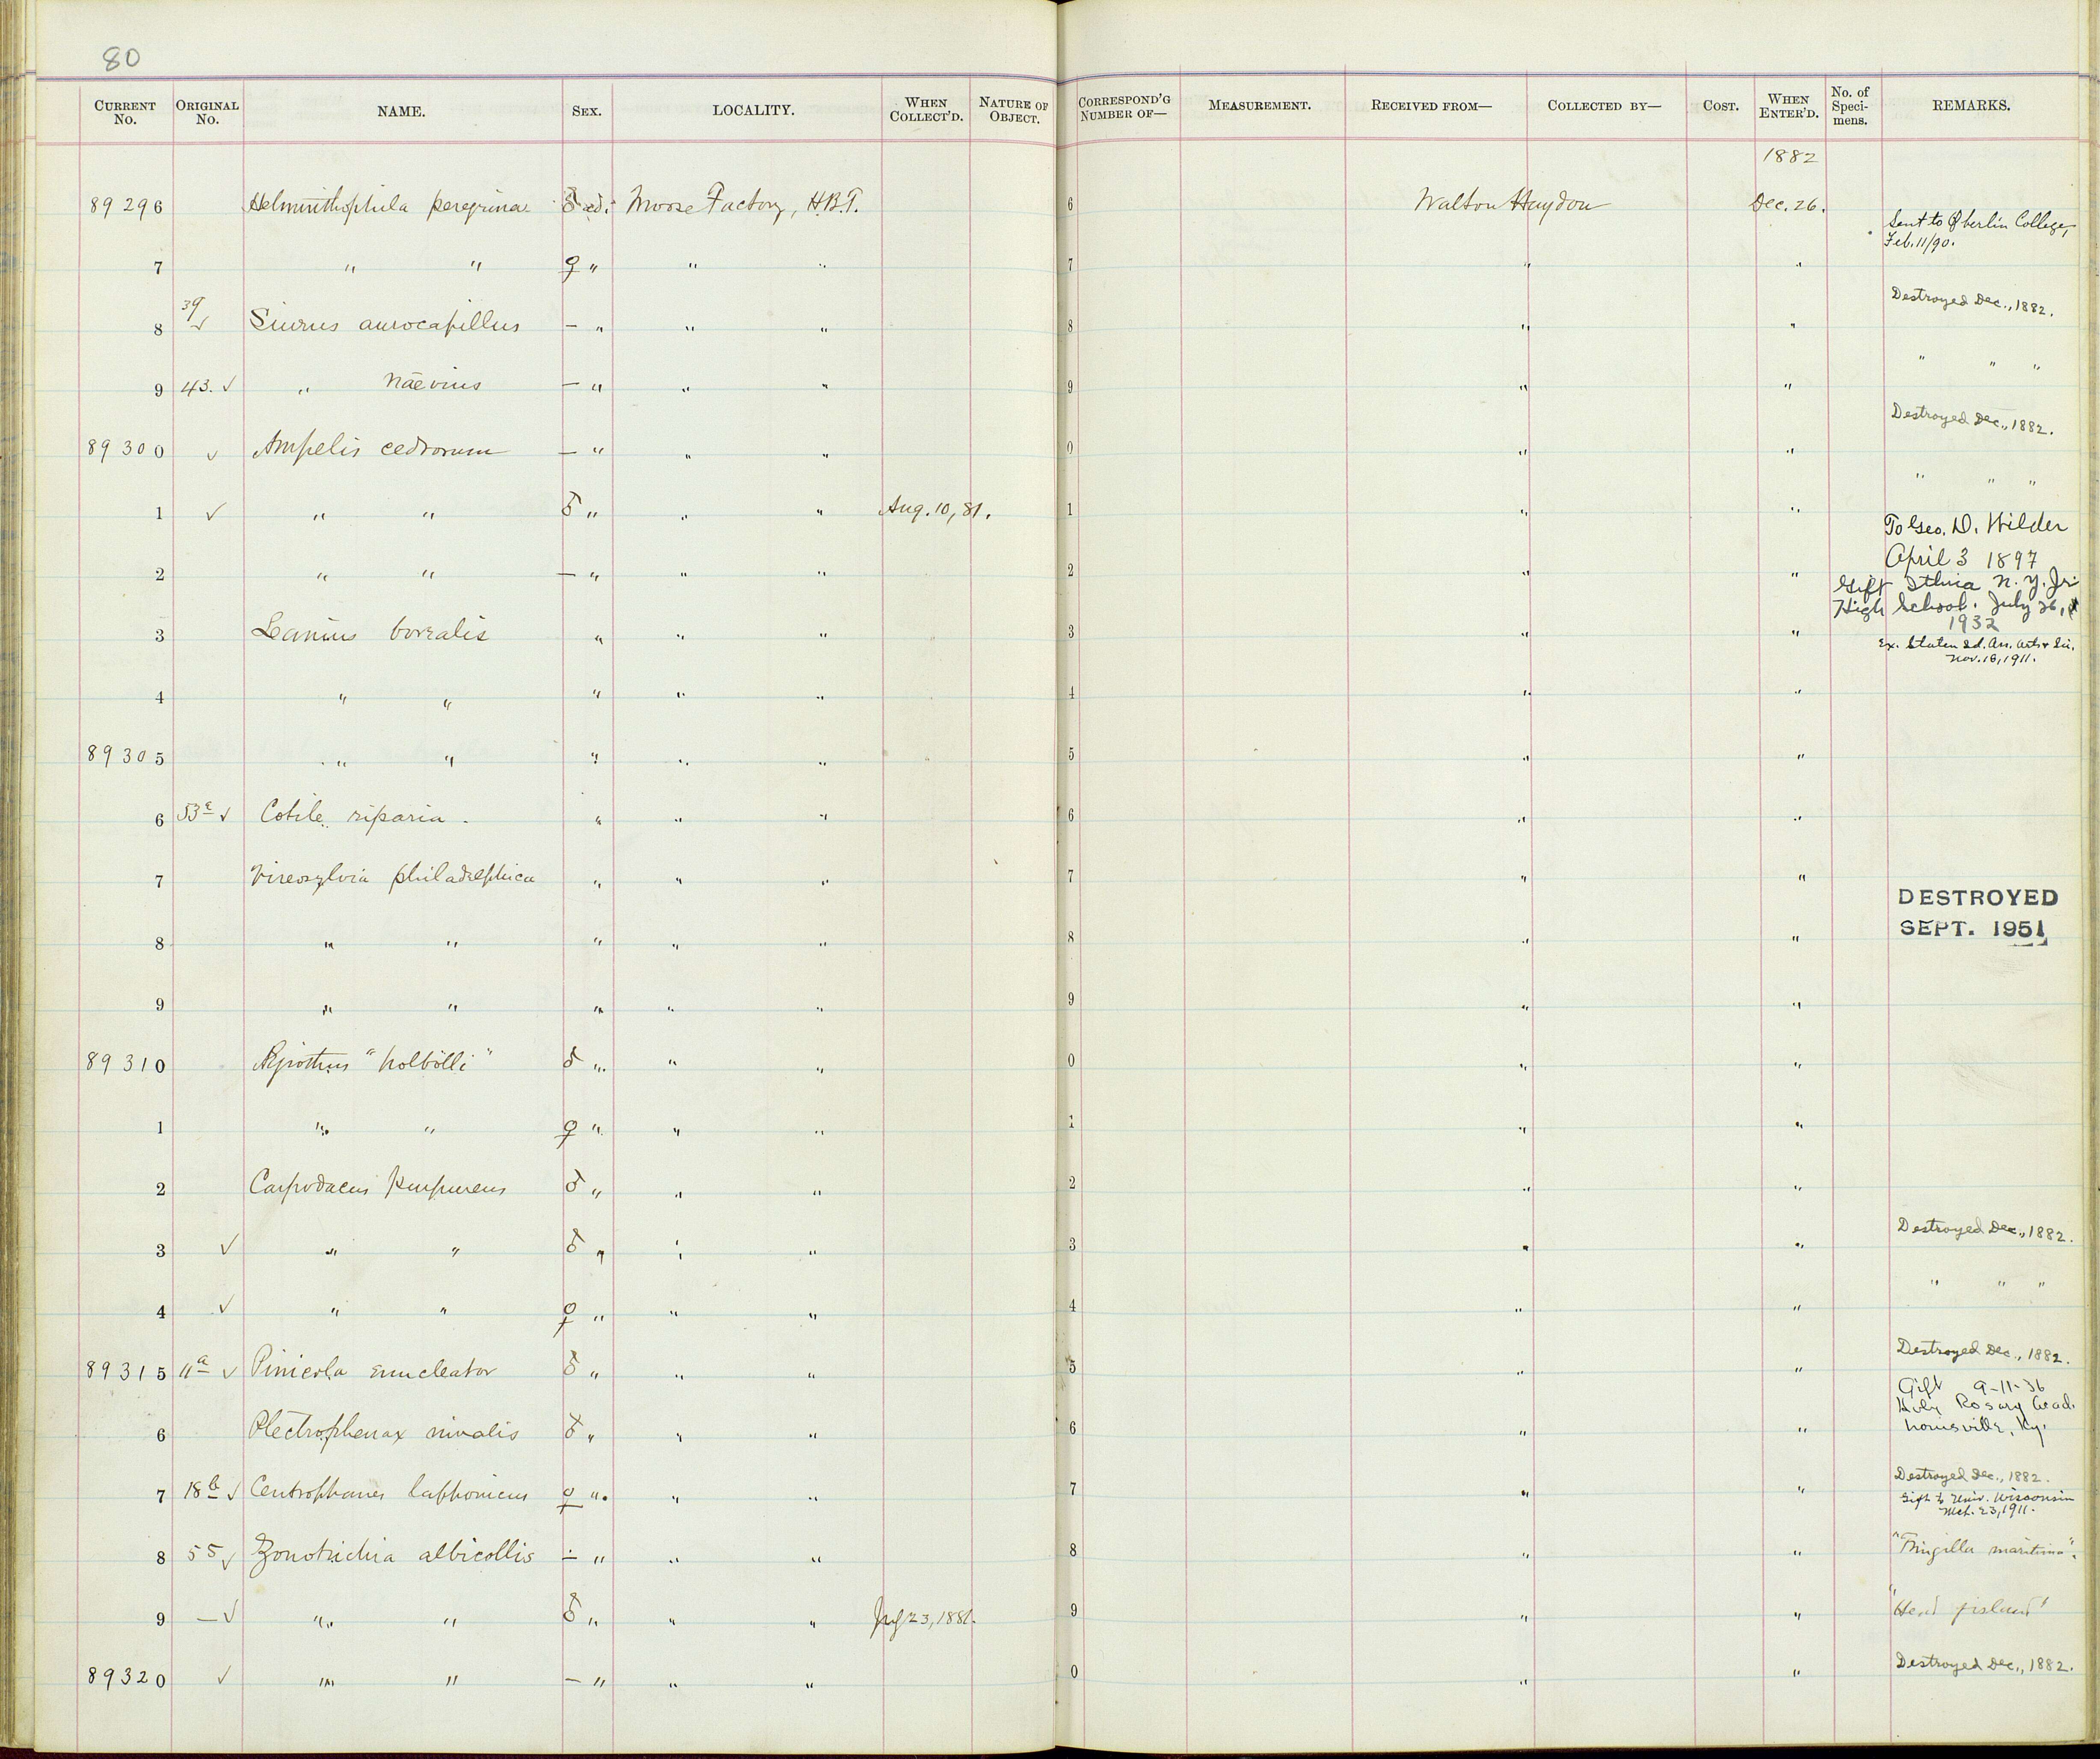 80
CURRENT No. ORIGINAL No. NAME. SEX. LOCALITY. WHEN COLLECT'D. NATURE OF OBJECT. CORRESPOND'G NUMBER OF— MEASUREMENT. RECEIVED FROM— COLLECTED BY— COST. WHEN ENTER'D. No. of Speci-mens. REMARKS.
1882
89296 Helminthophila peregrina ♂ ad. Moose Factory, H.B.T. 6 Walton Haydon Dec. 26.
Sent to Oberlin College, Feb. 11/90.
7 " " ♀ " " " 7 " "
Destroyed Dec., 1882.
8 39 ✓ Siurus aurocapillus — " " " 8 " "
" " "
9 43. ✓ " naevius — " " " 9 " "
Destroyed Dec., 1882.
89300 ✓ Ampelis cedrorum — " " " 0 " "
" " "
1 ✓ " " ♂ " " " Aug. 10, 81. 1 " "
To Geo. D. Wilder
April 3 1897
2 " " — " " " 2 " "
Gift Ithica N.Y. Jr.
High School. July 26,
1932
3 Lanius borealis " " " 3 " "
Ex. Staten Id. Ass. Arts & Sci.
Nov. 18, 1911.
4 " " " " " 4 " "
89305 " " " " " 5 " "
6 53 ✓ Cotile riparia. " " " 6 " "
7 Vireosylvia philadelphica " " " 7 " "
DESTROYED
SEPT. 1951
8 " " " " " 8 " "
9 " " " " " 9 " "
89310 Ægiothus "holbölli" ♂ " " " 0 " "
1 " " ♀ " " " 1 " "
2 Carpodacus purpureus ♂ " " " 2 " "
Destroyed Dec., 1882.
3 ✓ " " ♂ " " " 3 " "
" " "
4 ✓ " " ♀ " " " 4 " "
Destroyed Dec., 1882.
89315 11a ✓ Pinicola enucleator ♂ " " " 5 " "
Gift 9-11-36
Holy Rosary Acad.
Louisville, Ky.
6 Plectrophenax nivalis ♂ " " " 6 " "
Destroyed Dec., 1882.
7 18b ✓ Centrophanes lapponicus ♀ " " " 7 " "
Gift to Univ. Wisconsin
Mch. 23, 1911.
8 55 ✓ Zonotrichia albicollis — " " " 8 " " "Fringilla maritima".
9 — ✓ " " ♂ " " " 23, 1881. 9 " "
89320 ✓ " " — " " " 0 " " Destroyed Dec., 1882.